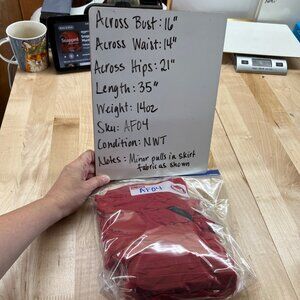 Across Bust: 16"
Across Waist: 14"
Across Hips: 21"
Length: 35"
Weight: 14oz
Sku: AF04
Condition: NWT
Notes: Minor pulls in skirt
fabric as shown
AF04